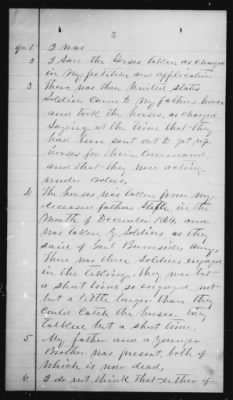 3
Qu. 1 I was
2 I saw the horses taken as charged
in my petition and application
3 There was then United States
Soldiers came to my fathers house
and took the horses, as charged
Saying at the time that they
had been sent out to get up
horses for their command
and that they were acting
under orders,
4 The horses was taken from my
deceased fathers Stable in the
Month of December 1864 and
was taken by Soldiers as they
said of Genl Burnsides Army
There was three Soldiers engaged
in the taking. They was but
a short time so engaged, not
but a little longer than they
could catch the horses. They
talked but a short time.
5 My father and a younger
Brother was present, both of
which is now dead,
6 I do not think that either of